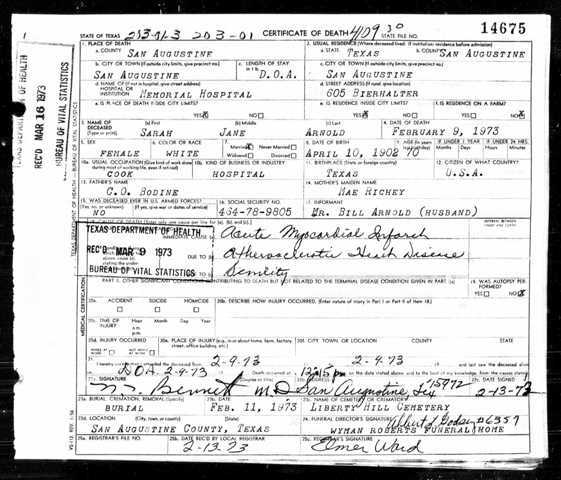 STATE OF TEXAS 203-01 CERTIFICATE OF DEATH 4109 30 STATE FILE NO. 14675
1. PLACE OF DEATH 2. USUAL RESIDENCE (Where deceased lived. If institution: residence before admission)
a. COUNTY SAN AUGUSTINE a. STATE TEXAS b. COUNTY SAN AUGUSTINE
b. CITY OR TOWN (If outside city limits, give precinct no.) c. LENGTH OF STAY c. CITY OR TOWN (If outside city limits, give precinct no.)
SAN AUGUSTINE D.O.A. SAN AUGUSTINE
d. NAME OF (If not in hospital, give street address) d. STREET ADDRESS (If rural, give location)
HOSPITAL OR INSTITUTION MEMORIAL HOSPITAL 605 BIERHALTER
e. IS PLACE OF DEATH INSIDE CITY LIMITS? e. IS RESIDENCE INSIDE CITY LIMITS? f. IS RESIDENCE ON A FARM?
YES X NO YES X NO YES NO X
3. NAME OF DECEASED (Type or print) (a) First (b) Middle (c) Last 4. DATE OF DEATH
SARAH JANE ARNOLD FEBRUARY 9, 1973
5. SEX 6. COLOR OR RACE 7. Married X Never Married Widowed Divorced 8. DATE OF BIRTH 9. AGE
FEMALE WHITE APRIL 10, 1902 70
10a. USUAL OCCUPATION (Give kind of work done during most of working life, even if retired) 10b. KIND OF BUSINESS OR INDUSTRY 11. BIRTHPLACE (State or foreign country) 12. CITIZEN OF WHAT COUNTRY?
COOK HOSPITAL TEXAS U.S.A.
13. FATHER'S NAME 14. MOTHER'S MAIDEN NAME
C.O. BODINE MAE RICHEY
15. WAS DECEASED EVER IN U.S. ARMED FORCES? 16. SOCIAL SECURITY NO. 17. INFORMANT
NO 454-78-9805 MR. BILL ARNOLD (HUSBAND)
TEXAS DEPARTMENT OF HEALTH Acute Myocardial Infarct
REC'D MAR 9 1973 DUE TO Atherosclerotic Heart Disease
BUREAU OF VITAL STATISTICS DUE TO Senility
19. WAS AUTOPSY PERFORMED?
YES NO X
20a. ACCIDENT SUICIDE HOMICIDE 20b. DESCRIBE HOW INJURY OCCURRED. (Enter nature of injury in Part I or Part II of item 18.)
20c. TIME OF INJURY Hour Month Day Year a.m. p.m.
20d. INJURY OCCURRED 20e. PLACE OF INJURY (e.g. in or about home, farm, factory, street, office building, etc.) 20f. CITY, TOWN, OR LOCATION COUNTY STATE
2-9-73 2-9-73
D.O.A. 2-9-73 Death occurred at 12:15 pm
22a. SIGNATURE 22b. ADDRESS 22c. DATE SIGNED
Bennett M.D. San Augustine Tex 75972 2-13-73
23a. BURIAL, CREMATION, REMOVAL (Specify) 23b. DATE 23c. NAME OF CEMETERY OR CREMATORY
BURIAL FEB. 11, 1973 LIBERTY HILL CEMETERY
23d. LOCATION (City, town, or county) (State) 24. FUNERAL DIRECTOR'S SIGNATURE
SAN AUGUSTINE COUNTY, TEXAS WYMAN ROBERTS FUNERAL HOME
25a. REGISTRAR'S FILE NO. 25b. DATE REC'D BY LOCAL REGISTRAR 25c. REGISTRAR'S SIGNATURE
2-13-73 Elmer Ward
REC'D MAR 16 1973
BUREAU OF VITAL STATISTICS
MEDICAL CERTIFICATION